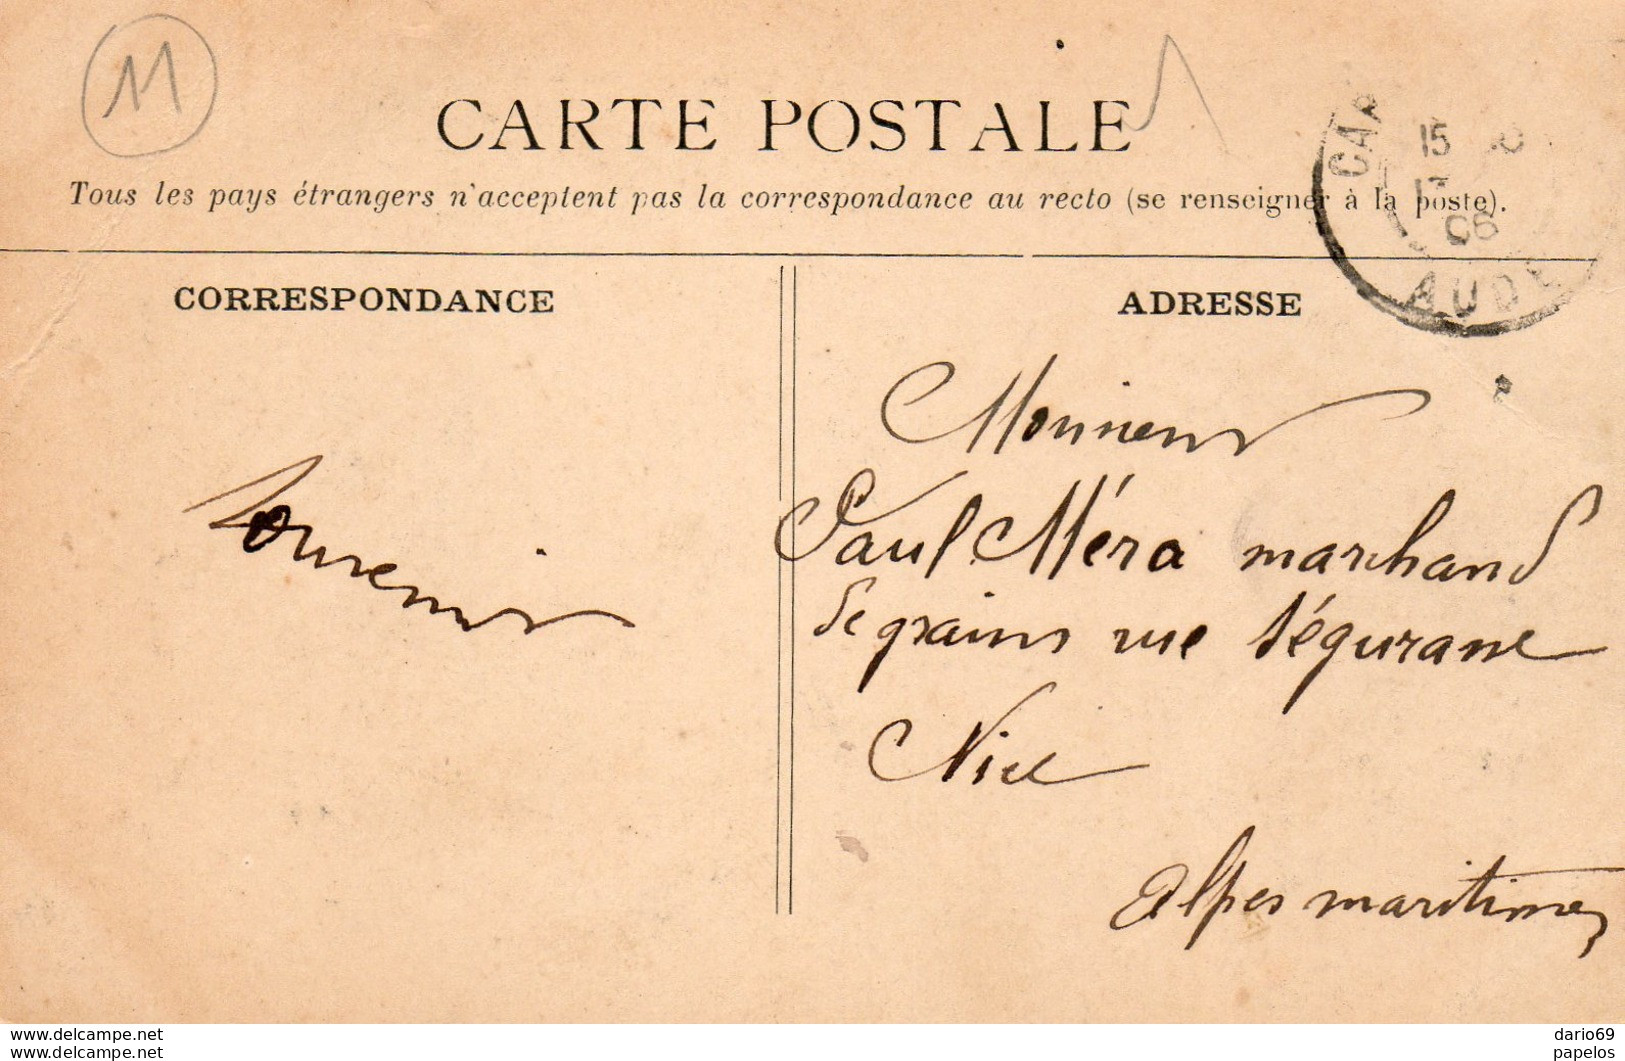 11
CARTE POSTALE
Tous les pays étrangers n'acceptent pas la correspondance au recto (se renseigner à la poste).
15
06
AUDE
CORRESPONDANCE
ADRESSE
Souvenir
Monsieur
Paul Méra marchand
de grains rue Ségurane
Nice
Alpes maritimes
www.delcampe.net
www.delcampe.net
dario69
papelos